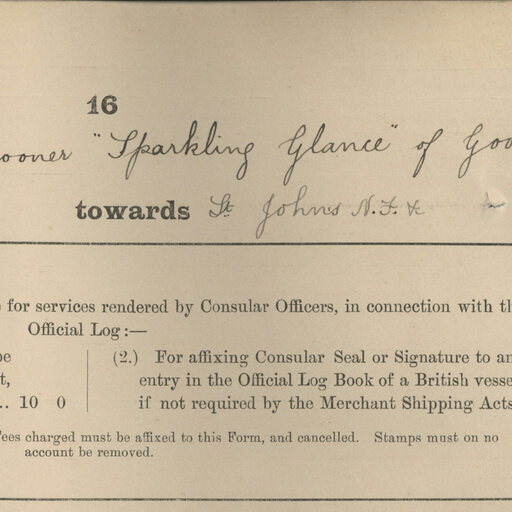 16
ooner "Sparkling Glance" of Goo
towards St Johns N.F. &
e for services rendered by Consular Officers, in connection with th
Official Log:—
be
(2.) For affixing Consular Seal or Signature to an
t,
entry in the Official Log Book of a British vesse
.. 10 0
if not required by the Merchant Shipping Acts
Fees charged must be affixed to this Form, and cancelled. Stamps must on no
account be removed.